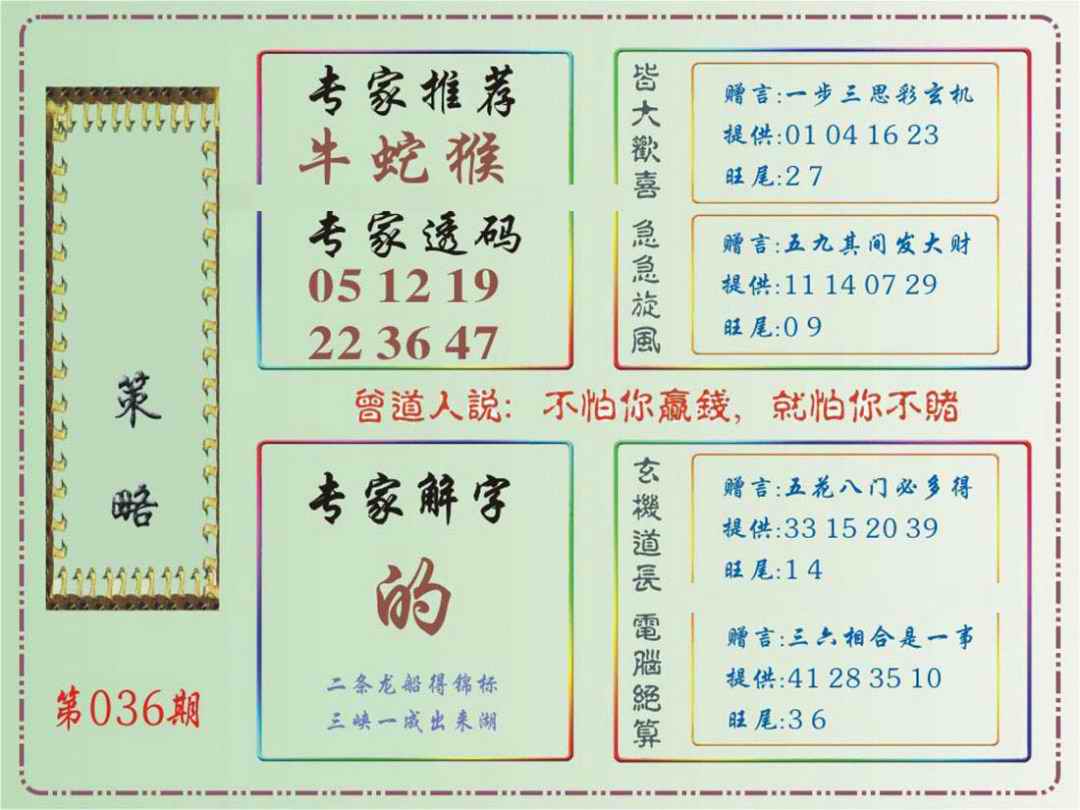 策略
第036期
专家推荐
牛蛇猴
专家透码
05 12 19
22 36 47
皆大歡喜
赠言:一步三思彩玄机
提供:01 04 16 23
旺尾:2 7
急急旋風
赠言:五九其间发大财
提供:11 14 07 29
旺尾:0 9
曾道人説: 不怕你赢錢, 就怕你不賭
专家解字
的
二条龙船得锦标
三峡一成出来湖
玄機道長
赠言:五花八门必多得
提供:33 15 20 39
旺尾:1 4
電腦絕算
赠言:三六相合是一事
提供:41 28 35 10
旺尾:3 6